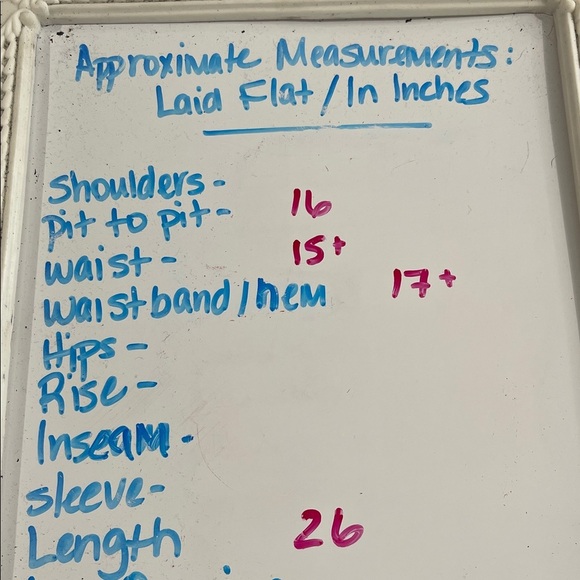 Approximate Measurements:
Laid Flat / In Inches
Shoulders -
pit to pit - 16
waist - 15+
waistband / hem 17+
Hips -
Rise -
Inseam -
sleeve -
Length 26